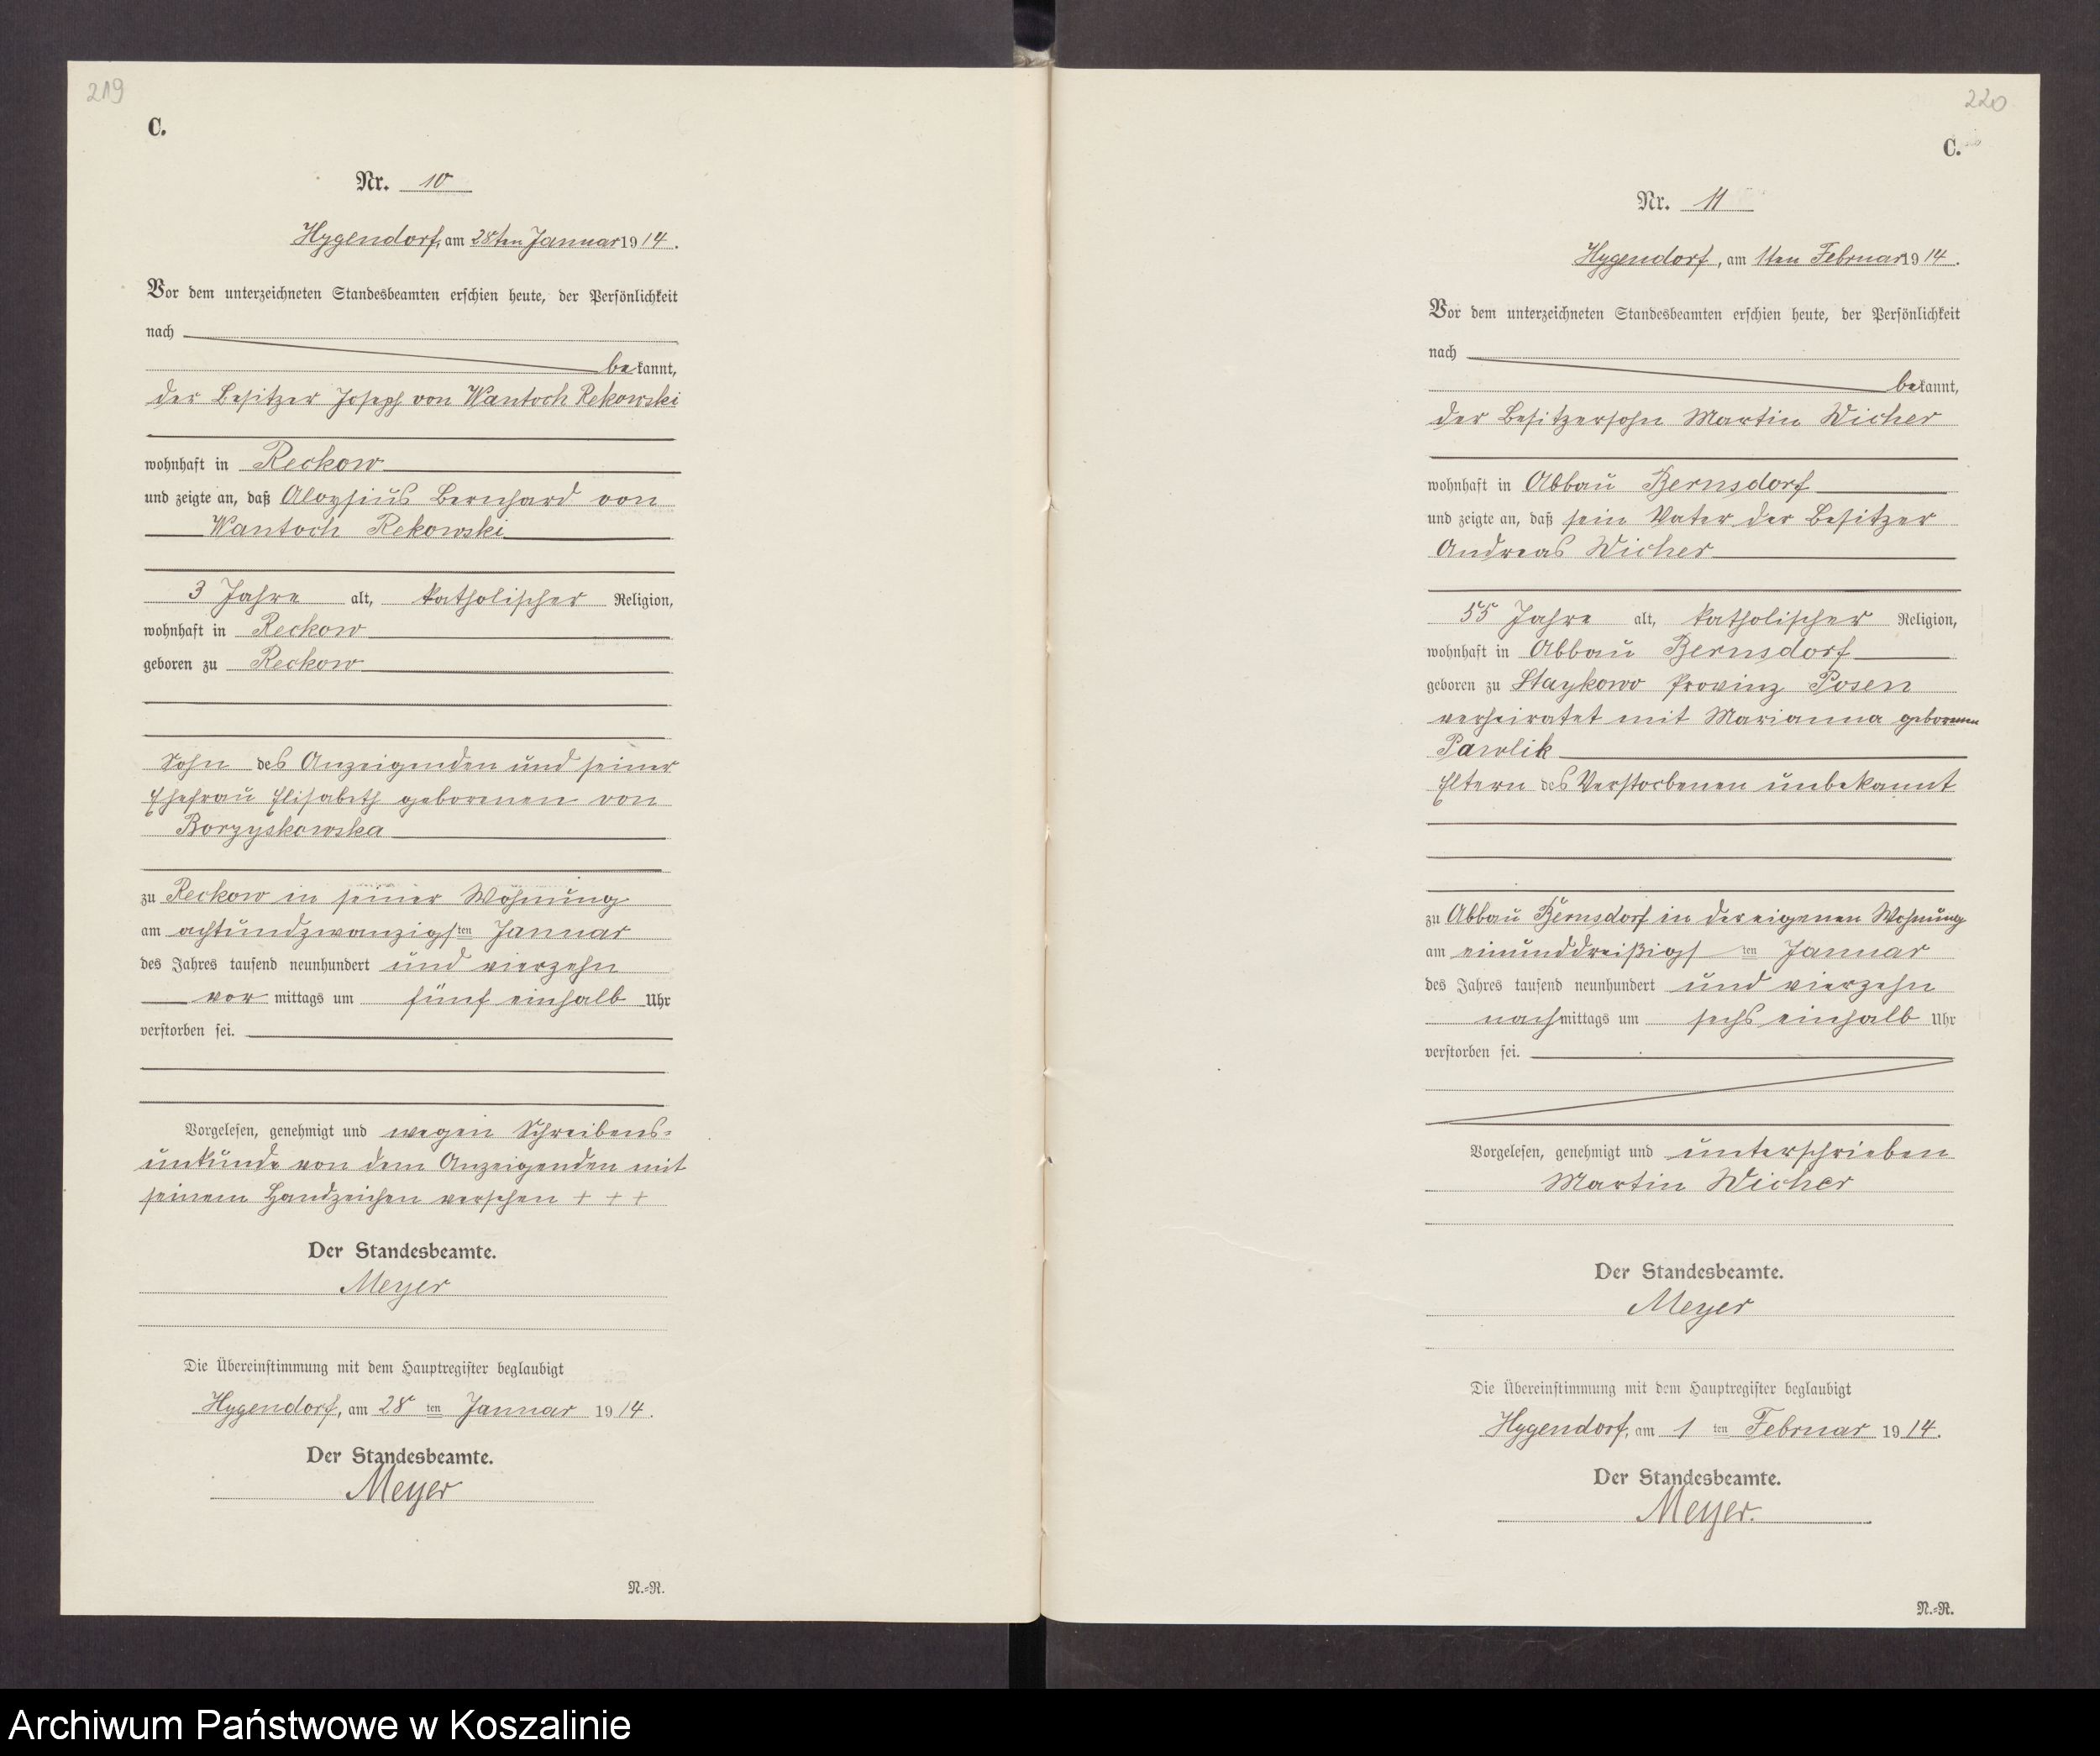 219
C.
Nr. 10
Hygendorf, am 28ten Januar 1914.
Vor dem unterzeichneten Standesbeamten erschien heute, der Persönlichkeit
nach
bekannt,
der Besitzer Joseph von Wantoch Rekowski
wohnhaft in Reckow
und zeigte an, daß Aloysius Bernhard von
Wantoch Rekowski
3 Jahre alt, katholischer Religion,
wohnhaft in Reckow
geboren zu Reckow
Sohn des Anzeigenden und seiner
Ehefrau Elisabeth geborenen von
Borzyskowska
zu Reckow in seiner Wohnung
am achtundzwanzigsten Januar
des Jahres tausend neunhundert und vierzehn
vor mittags um fünf einhalb Uhr
verstorben sei.
Vorgelesen, genehmigt und wegen Schreibens-
unkunde von dem Anzeigenden mit
seinem Handzeichen versehen + + +
Der Standesbeamte.
Meyer
Die Übereinstimmung mit dem Hauptregister beglaubigt
Hygendorf, am 28 ten Januar 1914.
Der Standesbeamte.
Meyer
N.=R.
220
C.
Nr. 11
Hygendorf, am 1ten Februar 1914.
Vor dem unterzeichneten Standesbeamten erschien heute, der Persönlichkeit
nach
bekannt,
der Besitzersohn Martin Wicher
wohnhaft in Abbau Bernsdorf
und zeigte an, daß sein Vater der Besitzer
Andreas Wicher
55 Jahre alt, katholischer Religion,
wohnhaft in Abbau Bernsdorf
geboren zu Staykowo Provinz Posen
verheiratet mit Marianna geborenen
Pawlik
Eltern des Verstorbenen unbekannt
zu Abbau Bernsdorf in der eigenen Wohnung
am einunddreißigsten Januar
des Jahres tausend neunhundert und vierzehn
nachmittags um sechs einhalb Uhr
verstorben sei.
Vorgelesen, genehmigt und unterschrieben
Martin Wicher
Der Standesbeamte.
Meyer
Die Übereinstimmung mit dem Hauptregister beglaubigt
Hygendorf, am 1 ten Februar 1914.
Der Standesbeamte.
Meyer.
N.=R.
Archiwum Państwowe w Koszalinie